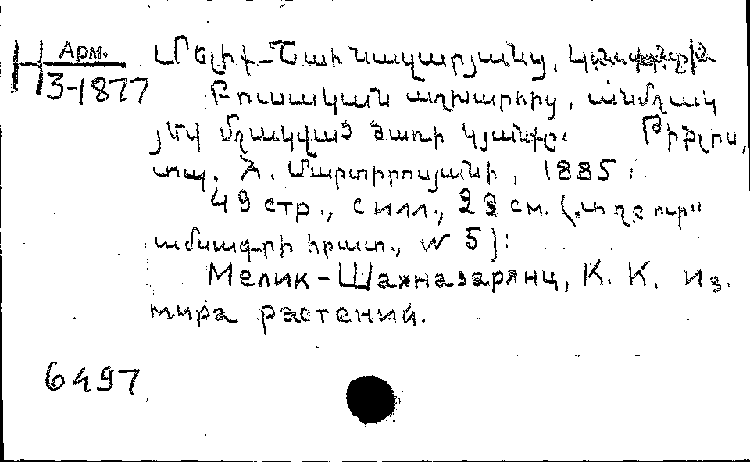 Арм.
Н 3-1877
Մելիք-Շահնազարյանց, Կոստանդին
Բուսական աշխարհից, անմշակ
յեվ մշակված ծառի կյանքը: Թիֆլիս,
տպ. Մարտիրոսյանի, 1885.
49 стр., с илл., 23 см. („Աղբյուր“
ամսագրի հրատ., № 5):
Мелик-Шахназарянц, К. К. Из
мира растений.
6497